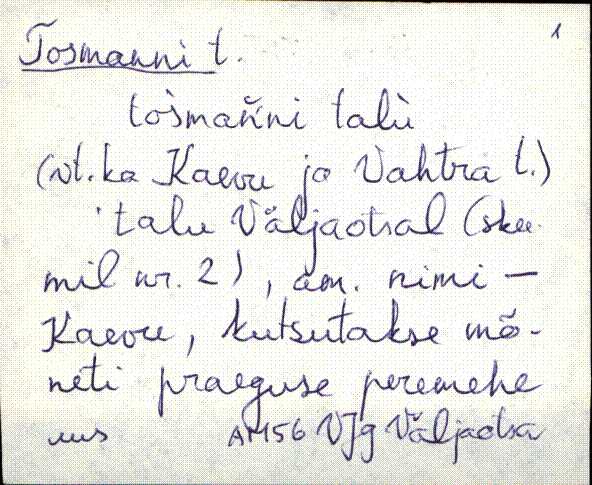 1
Tosmanni t.
tošmaňni talù
(vt. ka Kaevu ja Vahtra t.)
talu Väljaotsal (skee-
mil nr. 2), am. nimi –
Kaevu, kutsutakse mõ-
neti praeguse peremehe
AM56 VJg Väljaotsa